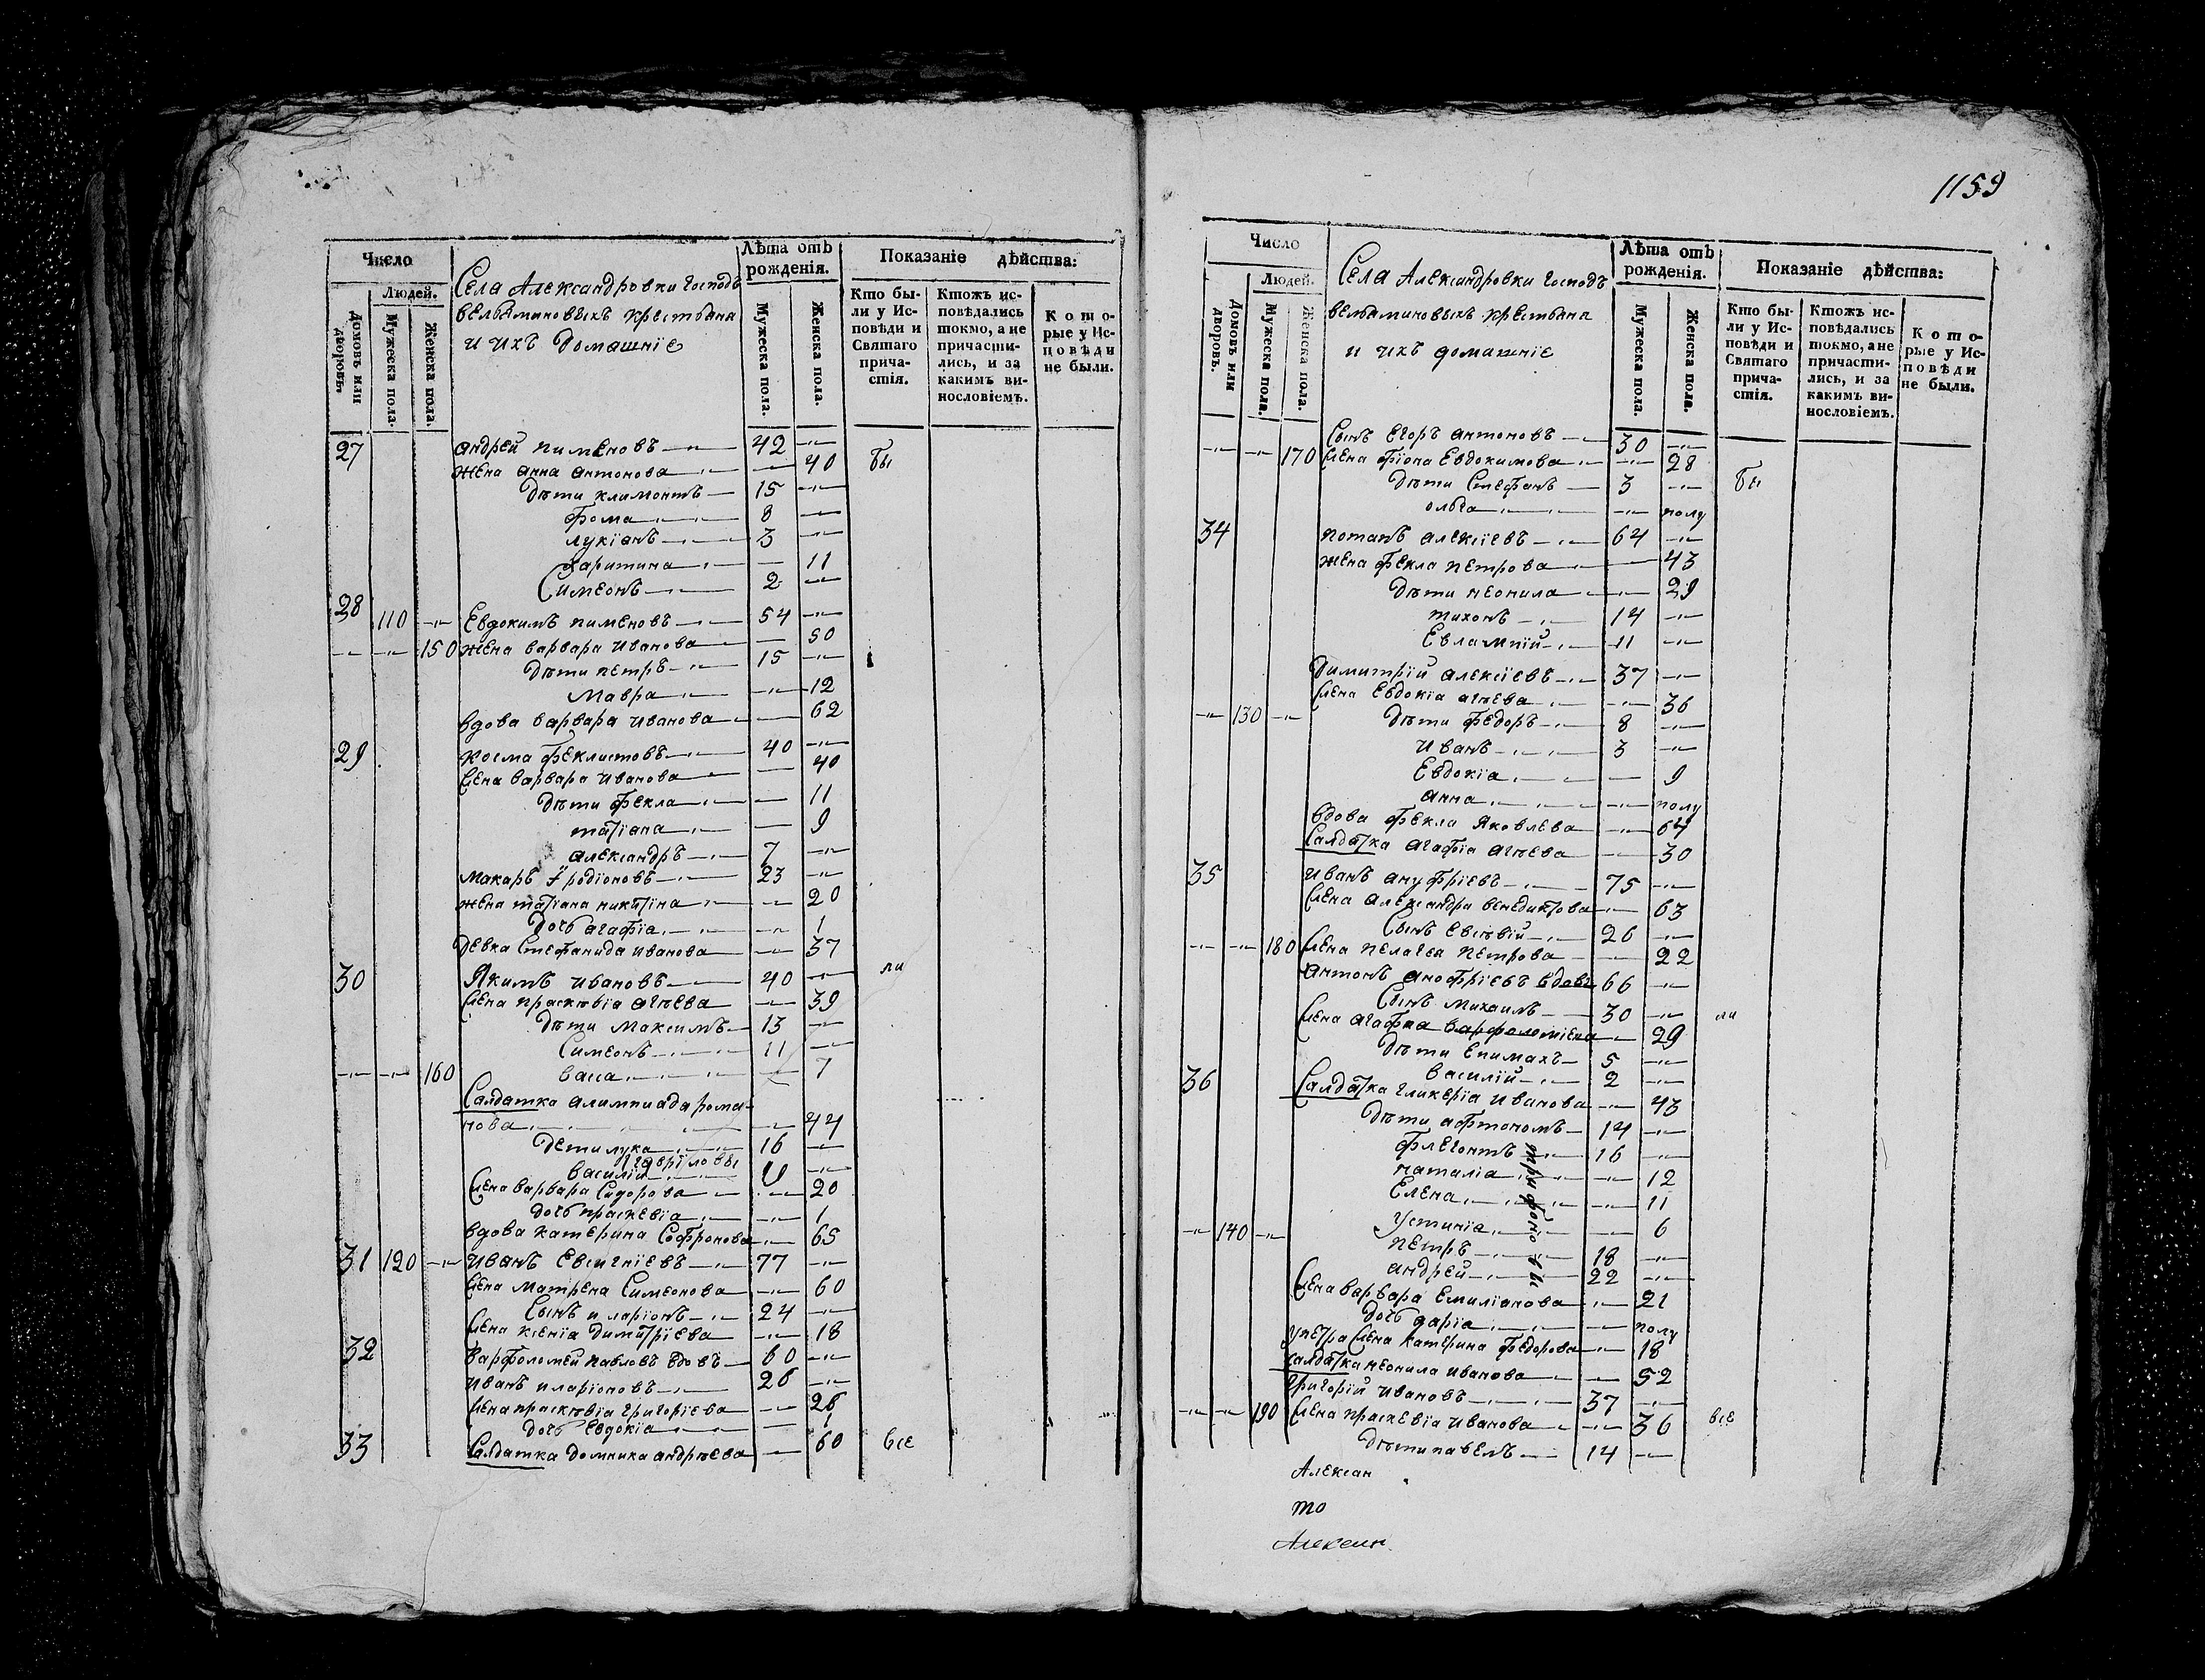 1159
Число
Людей.
Домовъ или дворовъ.
Мужеска пола.
Женска пола.
Села Александровки Господъ
вельяминовыхъ крестьяна
и ихъ домашніе
Лѣта отъ рожденія.
Мужеска пола.
Женска пола.
Показаніе дѣйства:
Кто бы-
ли у Ис-
повѣди и
Святаго
прича-
стія.
Ктожъ ис-
повѣдались
токмо, а не
причасти-
лись, и за
какимъ ви-
нословіемъ.
Кото-
рые у Ис-
повѣди
не были.
27 андрей пименовъ 42
жена анна антонова 40 бы
дѣти климонтъ 15
фома 8
лукіанъ 3
харитина 11
Симеонъ 2
28 110 Евдокимъ пименовъ 54
150 жена варвара иванова 50
дѣти петръ 15
мавра 12
вдова варвара иванова 62
29 косма феклистовъ 40
жена варвара иванова 40
дѣти фекла 11
татіана 9
александръ 7
макаръ родіоновъ 23
жена татіана никитина 20
дочь агафіа 1
девка Стефанида иванова 37
30 Якимъ ивановъ 40 ли
жена прасковіа агѣева 39
дѣти максимъ 13
Симеонъ 11
160 васа 7
Салдатка алимпиада рома-
нова 44
дети лука 16
гаврїловы
василій
жена варвара Сидорова 20
дочь праскевіа 1
вдова катерина Софронова 65
31 120 иванъ Евсигніевъ 77
жена матрена Симеонова 60
Сынъ иларіонъ 24
жена ксеніа димитріева 18
32 варфоломей павловъ вдовъ 60
иванъ иларіоновъ 26
жена прасковіа григоріева 26
дочь евдокіа 1
33 Салдатка домника андрѣева 60 все
Число
Людей.
Домовъ или дворовъ.
Мужеска пола.
Женска пола.
Села Александровки Господъ
вельяминовыхъ крестьяна
и ихъ домашніе
Лѣта отъ рожденія.
Мужеска пола.
Женска пола.
Показаніе дѣйства:
Кто бы-
ли у Ис-
повѣди и
Святаго
прича-
стія.
Ктожъ ис-
повѣдались
токмо, а не
причасти-
лись, и за
какимъ ви-
нословіемъ.
Кото-
рые у Ис-
повѣди
не были.
Сынъ Егоръ антоновъ 30
170 жена фіона Евдокимова 28
дѣти Стефанъ 3 бы
ольга полу
34 потапъ алексіевъ 64
жена фекла петрова 43
дѣти неонила 29
тихонъ 14
Евлампій 11
димитрій алексіевъ 37
жена Евдокіа агѣева 36
130 дѣти федоръ 8
иванъ 3
Евдокіа 9
анна полу
вдова фекла Яковлева 64
Салдатка агафіа агѣева 30
35 иванъ ануфріевъ 75
жена александра венедиктова 63
Сынъ евсѣвій 26
180 жена пелагеа петрова 22
антонъ анофріевъ вдовъ 66
Сынъ михаилъ 30 ли
жена агафиа варфоломиева 29
дѣти епимахъ 5
василій 2
36 Салдатка гликеріа иванова 43
дѣти афтономъ 14
флегонтъ 16
наталіа 12
Елена 11
устиніа 6
трифоновы
140 петръ 18
андрей 22
жена варвара Емиліанова 21
дочь даріа полу
у петра жена катерина федорова 18
салдатка неонила иванова 52
григорій ивановъ 37
190 жена праскевіа иванова 36 все
дѣти павелъ 14
Алексан
то
Алексин